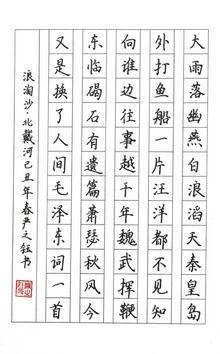 大雨落幽燕白浪滔天秦皇岛
外打鱼船一片汪洋都不见知
向谁边往事越千年魏武挥鞭
东临碣石有遗篇萧瑟秋风今
又是换了人间毛泽东词一首
浪淘沙·北戴河己丑年春尹文钰书